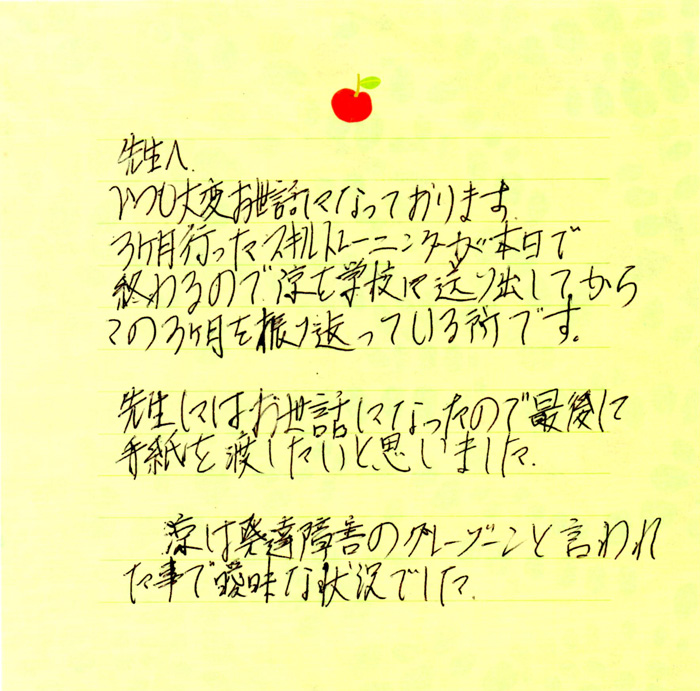 先生へ
いつも大変お世話になっております。
3ヶ月行ったスキルトレーニングが本日で
終わるので涼を学校に送り出してから
この3ヶ月を振り返っている所です。
先生にはお世話になったので最後に
手紙を渡したいと思いました。
涼は発達障害のグレーゾーンと言われ
た事で曖昧な状況でした。